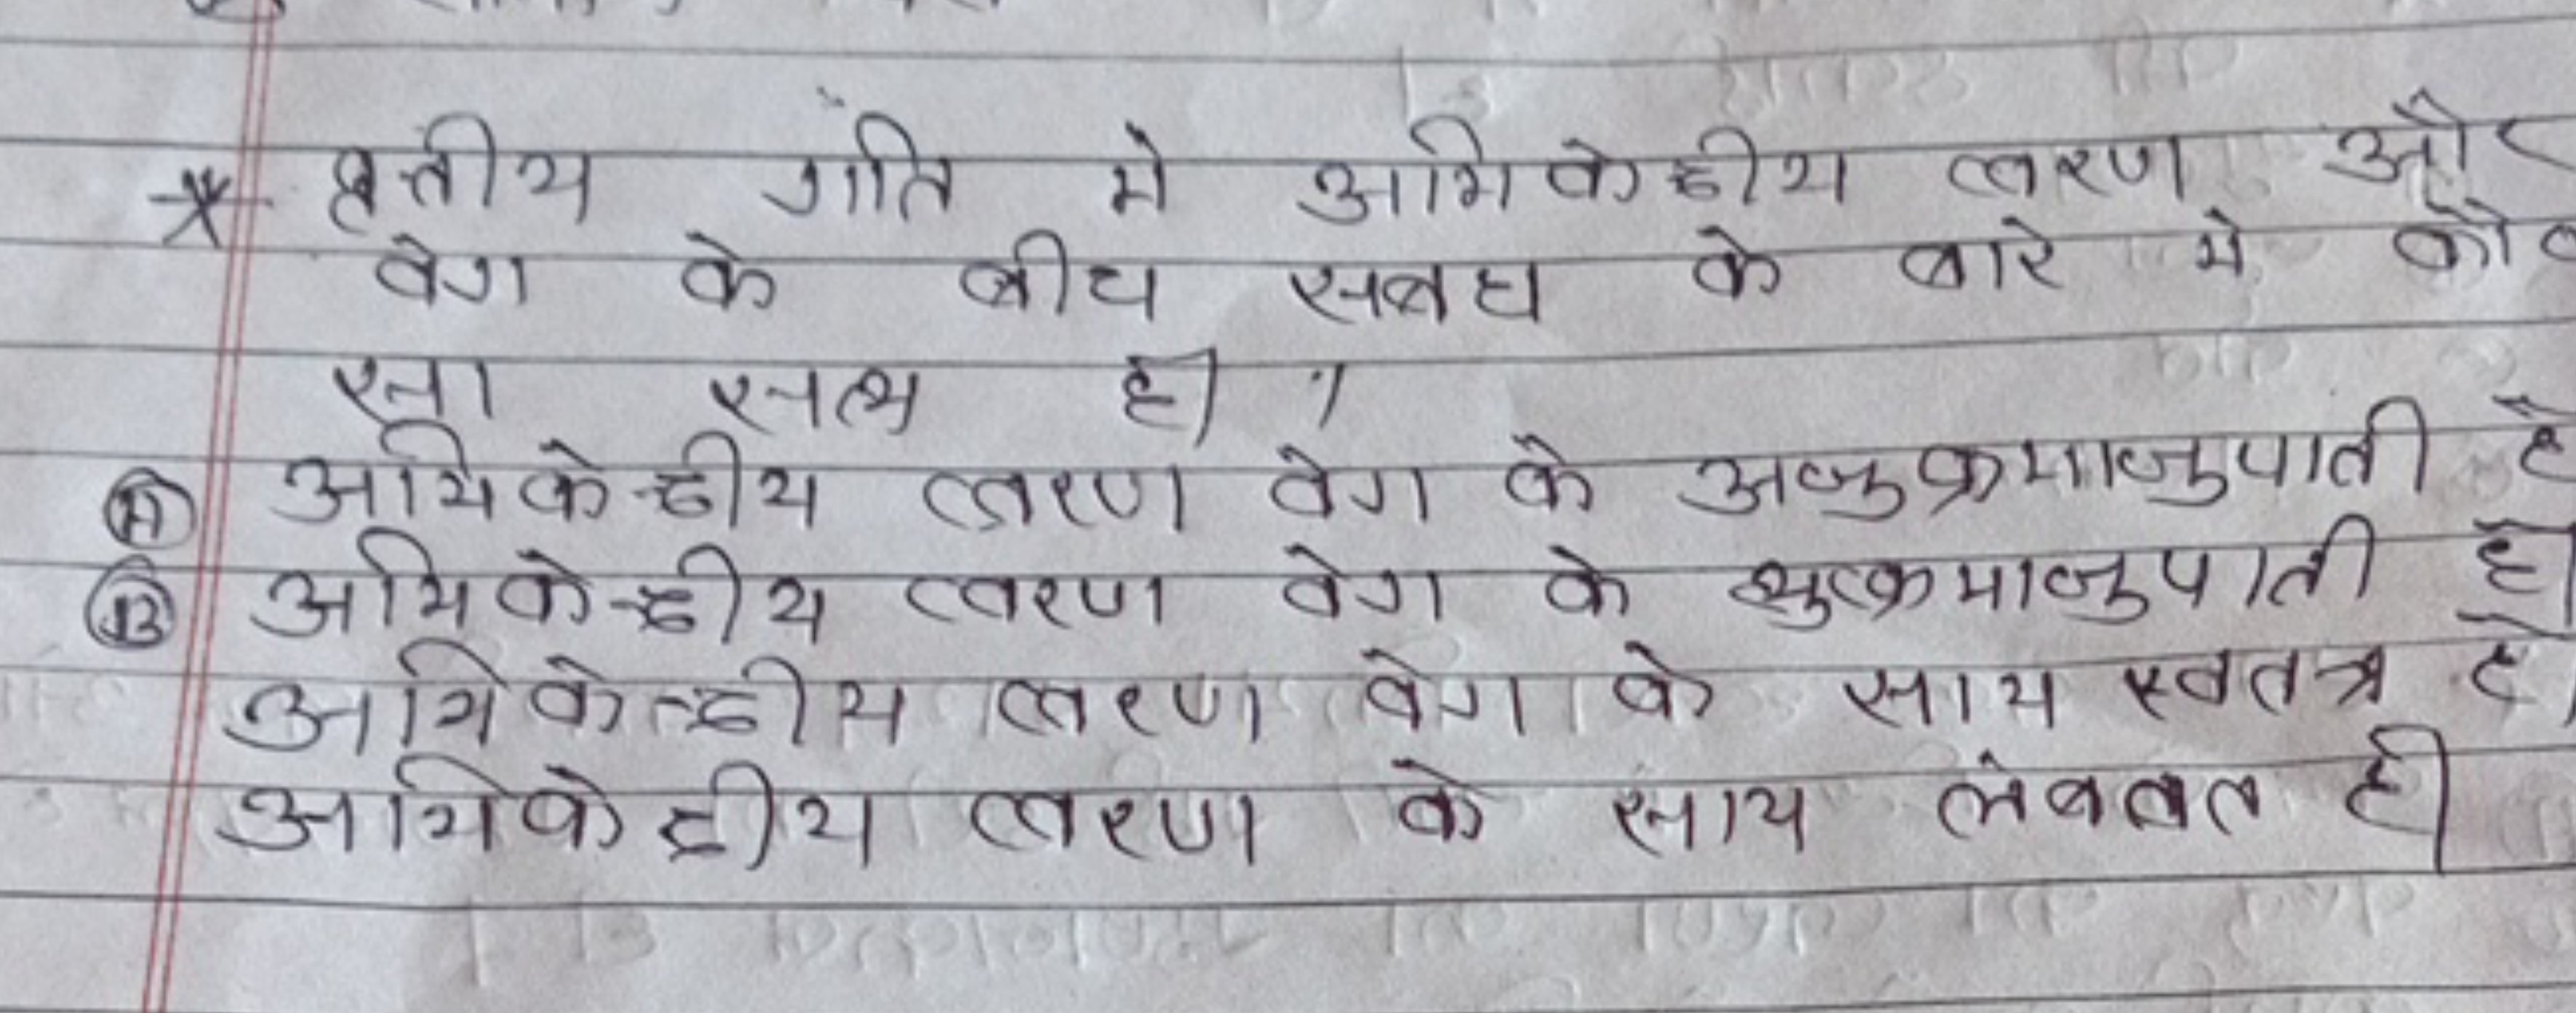 * वृत्तीय गति मे अभिकेन्द्रीय त्वरण और
वेग के बीच सबंध के बारे मे कौन
सा सत्य है ?
(A) अभिकेन्द्रीय त्वरण वेग के अनुक्रमानुपाती है
(B) अभिकेन्द्रीय त्वरण वेग के व्युत्क्रमानुपाती है
अभिकेन्द्रीय त्वरण वेग के साथ स्वतत्र है
अभिकेद्रीय त्वरण के साथ लंबवत है